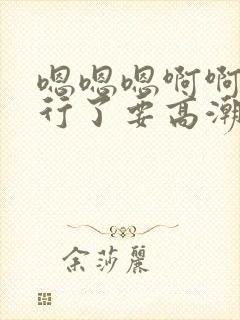 嗯嗯嗯啊啊
行了要高潮
余莎丽